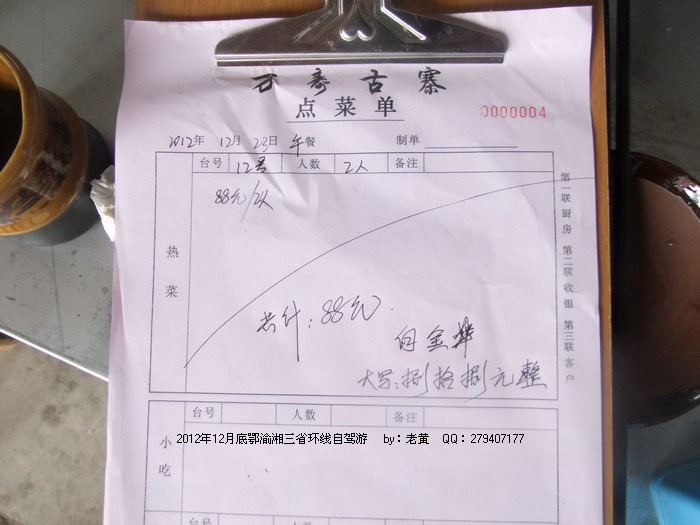 万寿古寨
点菜单
0000004
2012年 12月 23日 午餐 制单
台号 12号 人数 2人 备注
88元/2人
热菜
共计：88元
大写：捌拾捌元整
第一联厨房 第二联收银 第三联客户
台号 人数 备注
2012年12月底鄂渝湘三省环线自驾游 by：老黄 QQ：279407177
小吃
台号 人数 备注